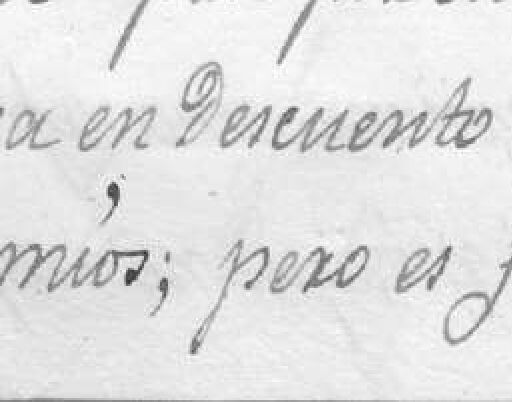 a en Descuento
mios; pero es